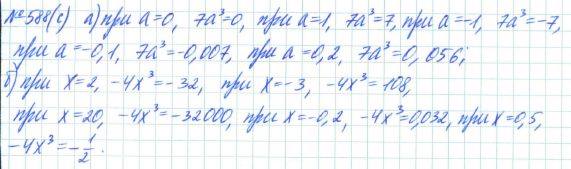 №588(с) а) при a=0, 7a³=0, при a=1, 7a³=7, при a=-1, 7a³=-7,
при a=-0,1, 7a³=-0,007, при a=0,2, 7a³=0,056;
б) при x=2, -4x³=-32, при x=-3, -4x³=108,
при x=20, -4x³=-32000, при x=-0,2, -4x³=0,032, при x=0,5,
-4x³=-1/2.